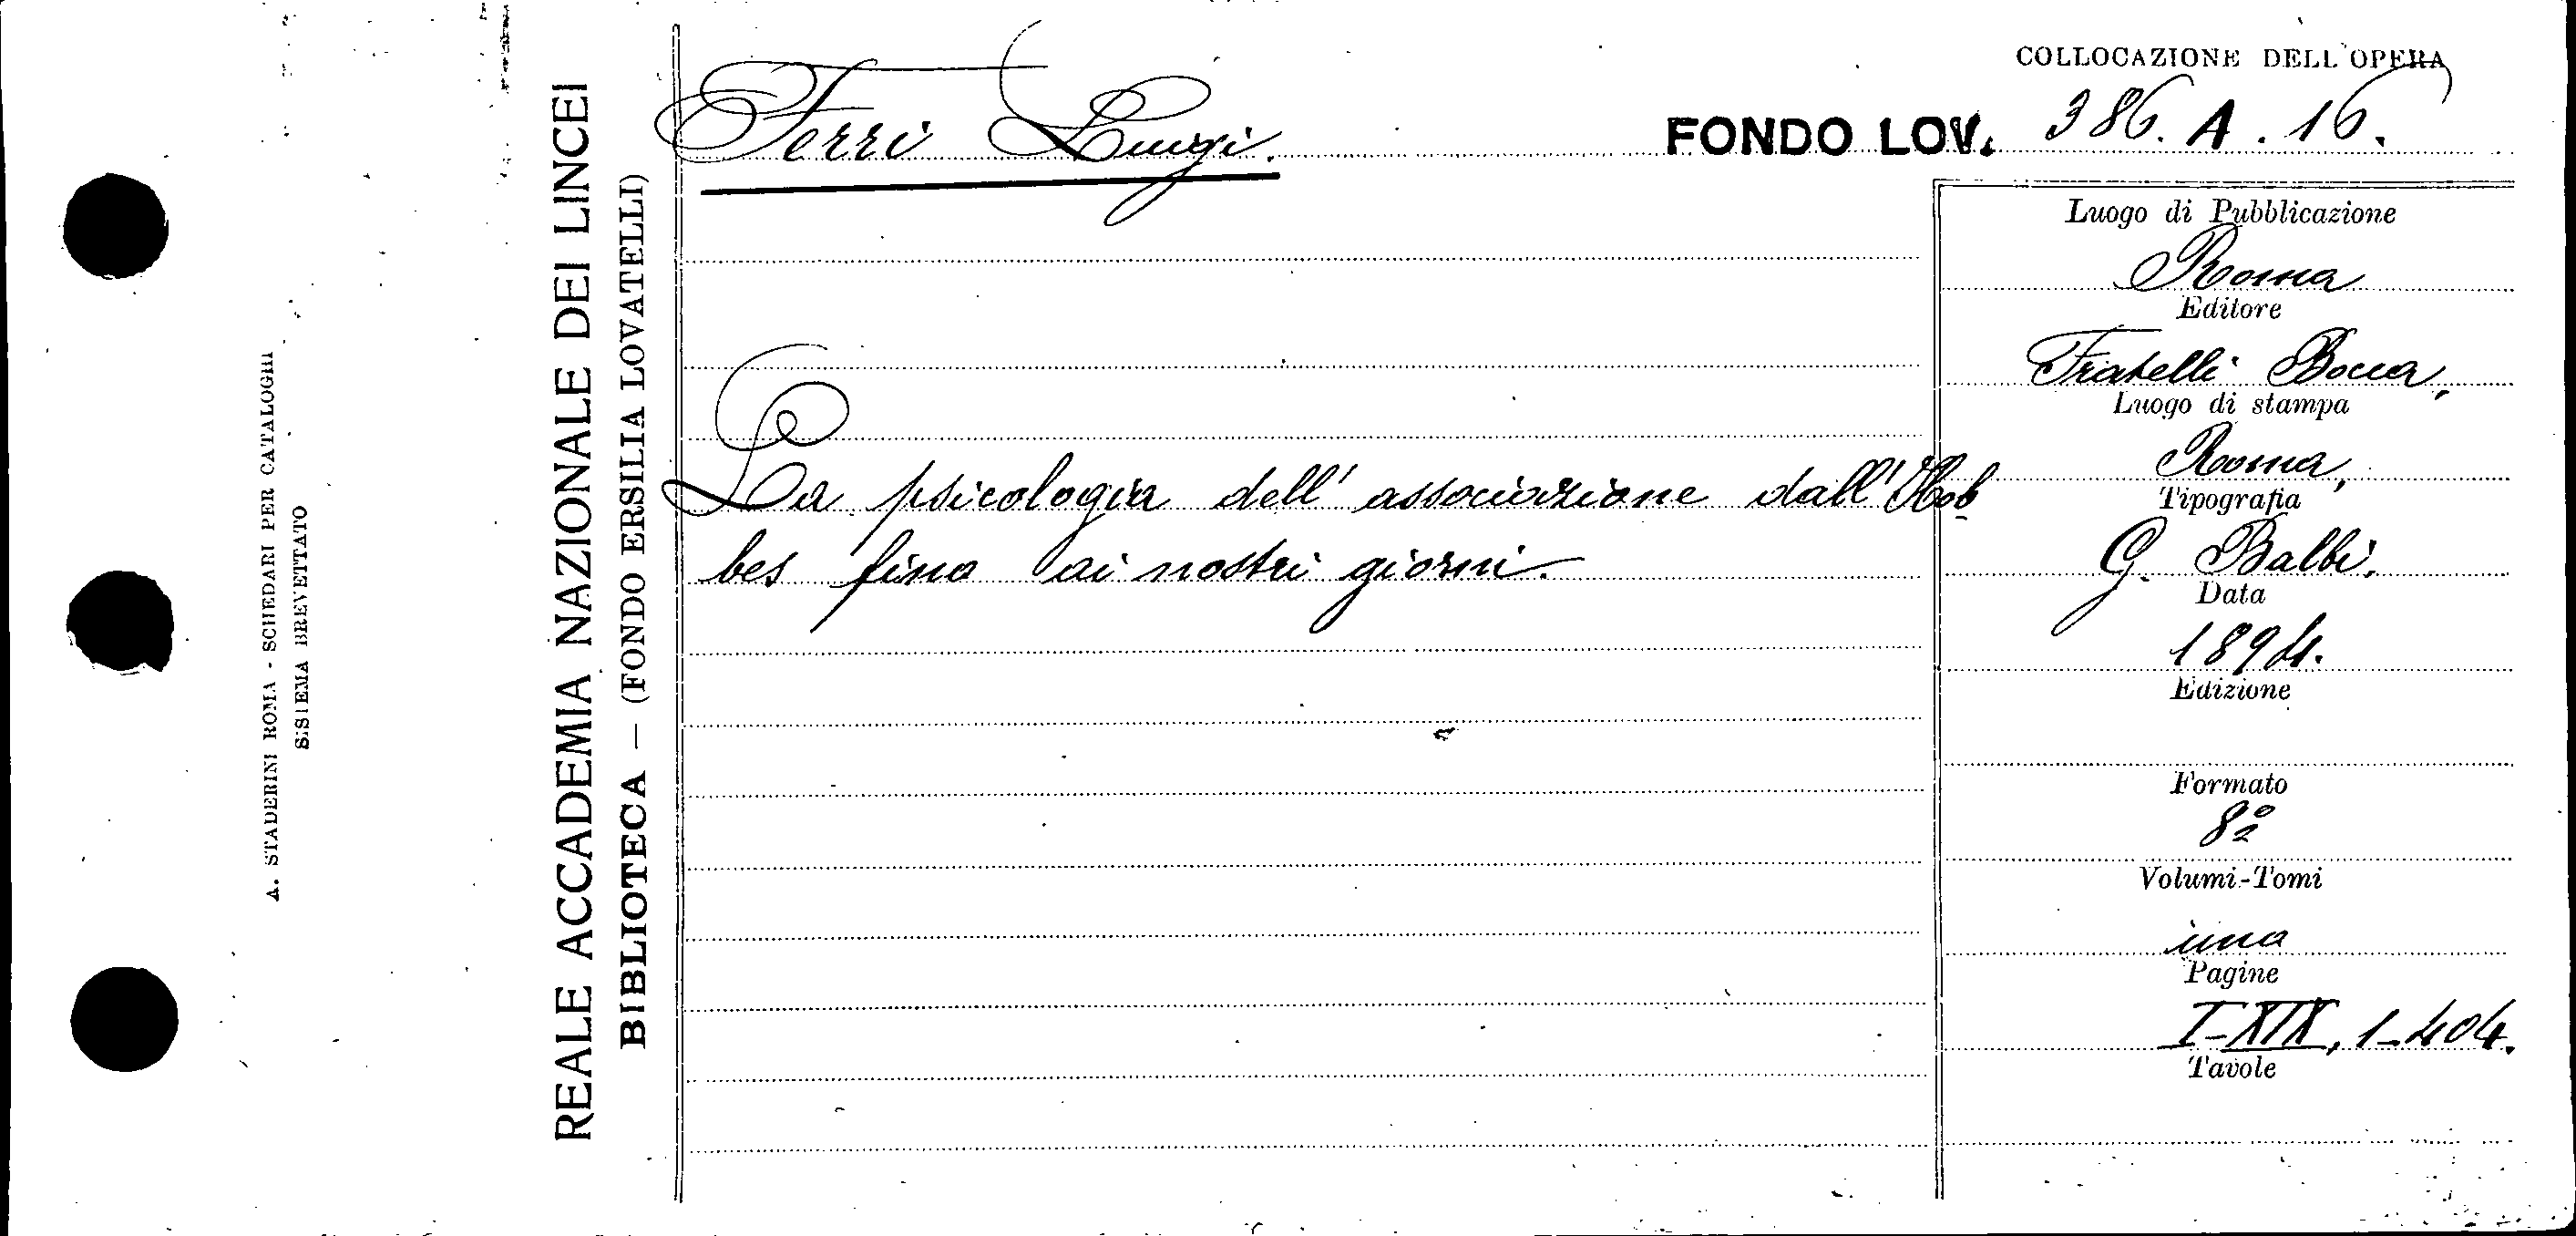 A. STADERINI ROMA - SCHEDARI PER CATALOGHI
SISTEMA BREVETTATO
REALE ACCADEMIA NAZIONALE DEI LINCEI
BIBLIOTECA — (FONDO ERSILIA LOVATELLI)
Ferri Luigi.
COLLOCAZIONE DELL'OPERA
FONDO LOV. 386. A. 16.
La psicologia dell'associazione dall'Hob
bes fino ai nostri giorni.
Luogo di Pubblicazione
Roma
Editore
Fratelli Bocca,
Luogo di stampa
Roma,
Tipografia
G. Balbi.
Data
1894.
Edizione
Formato
8º
Volumi-Tomi
uno
Pagine
I-XIX, 1-404.
Tavole